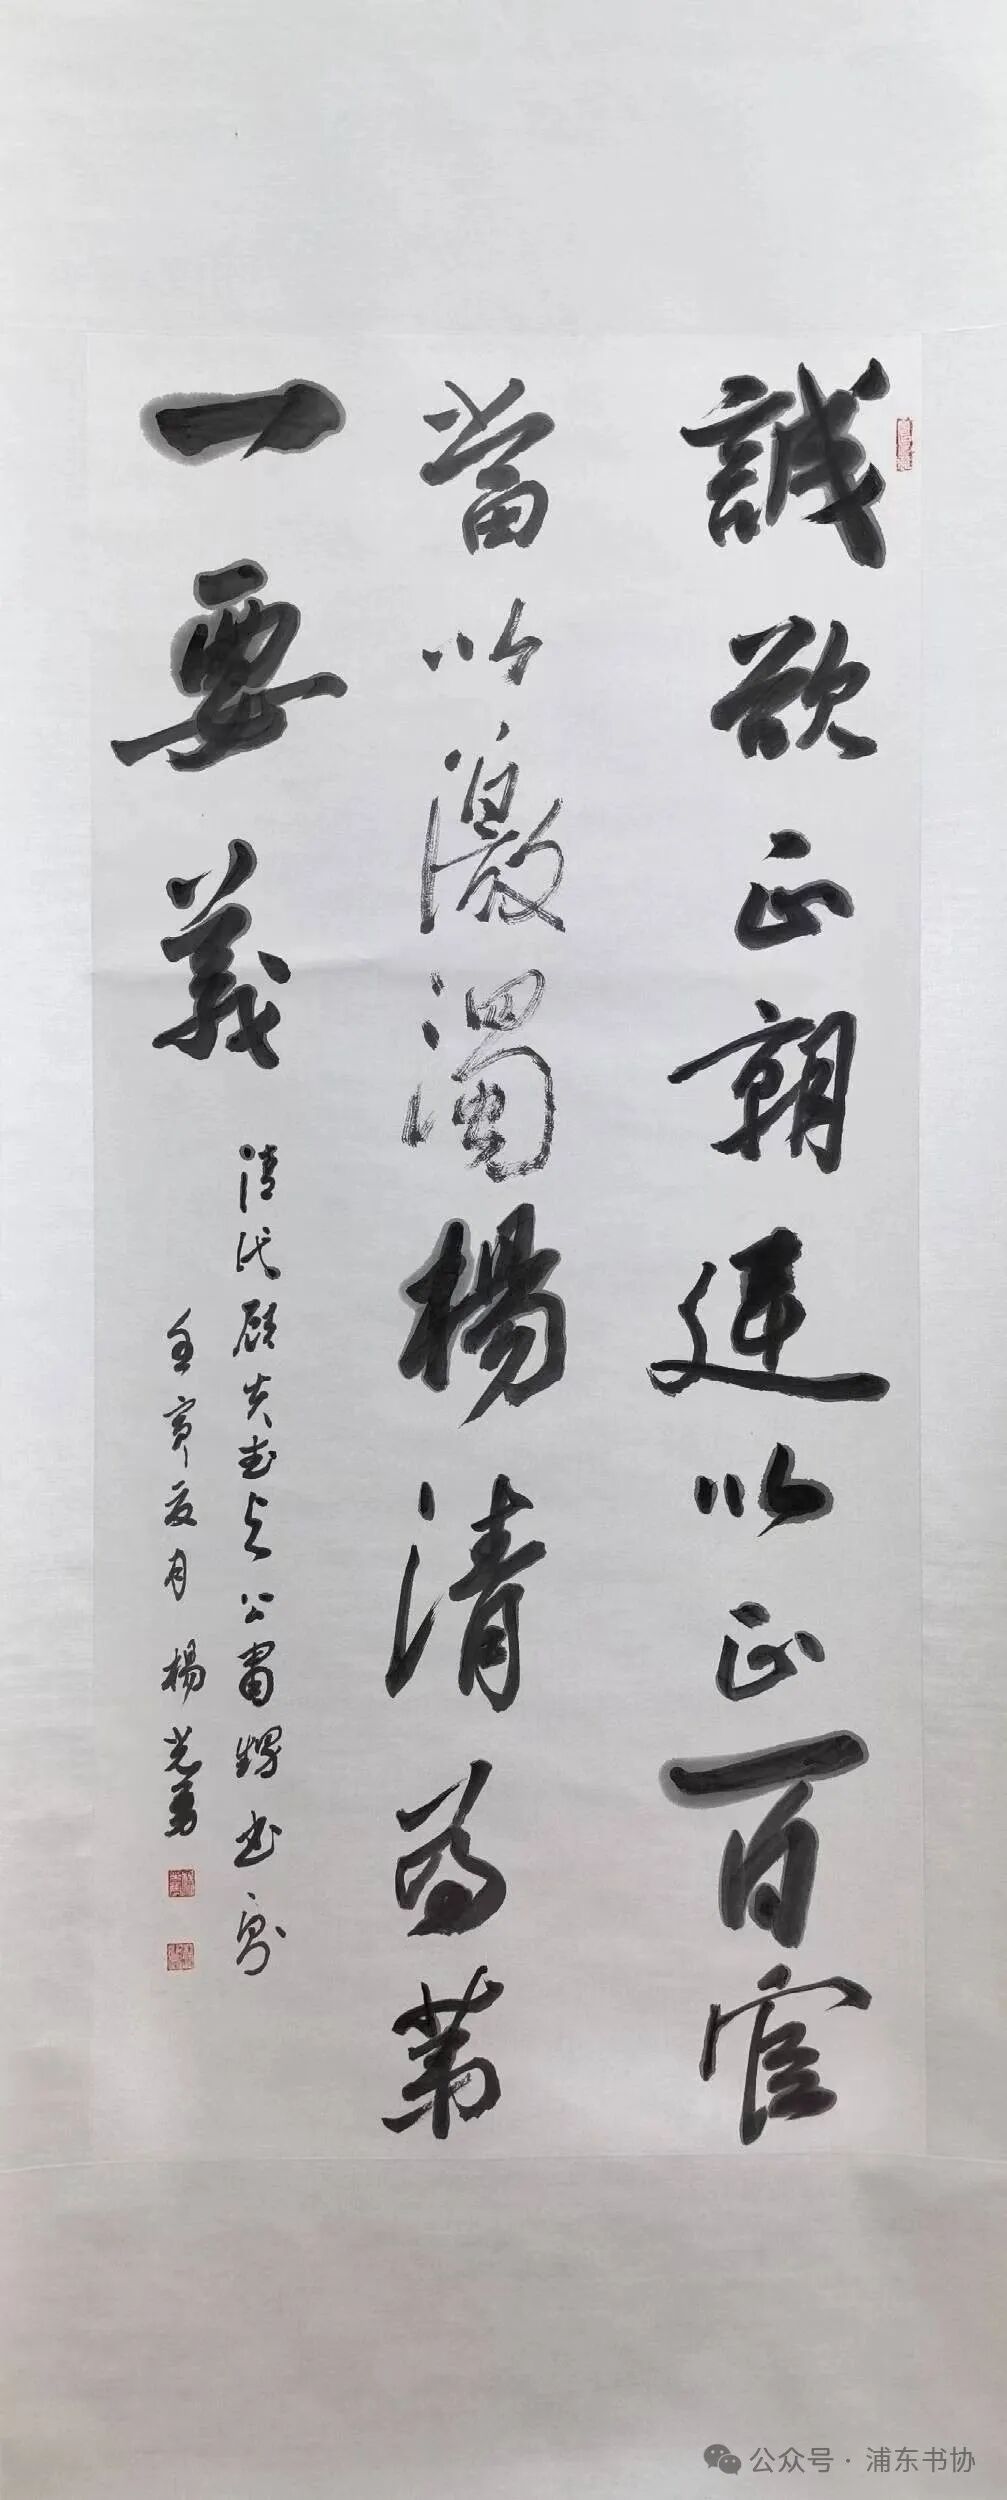 誠欲正朝廷以正百官
當以激濁楊清為第
一要義
清代顧炎武與公肅甥書句
壬寅夏月 楊光勇
公众号 · 浦东书协